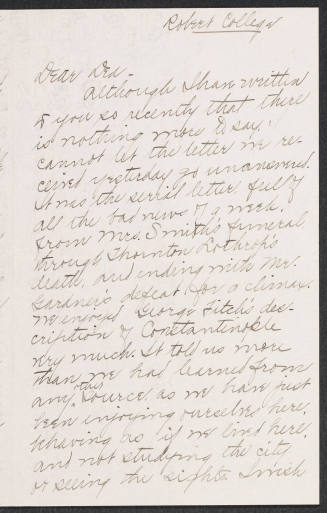 Robert College
Dear Dea -
Although I have written
to you so recently that there
is nothing more to say, I
cannot let the letter we re-
ceived yesterday go unanswered.
It was the serial letter full of
all the bad news of a week,
from Mrs. Smith's funeral,
through Thornton Lothrop's
death, and ending with Mr.
Gardner's defeat for a climax.
We enjoyed George Fitch's des-
cription of Constantinople
very much. It told us more
than we had learned from
any other source, as we have just
been enjoying ourselves here,
behaving as if we lived here,
and not studying the city
or seeing the sights. I wish